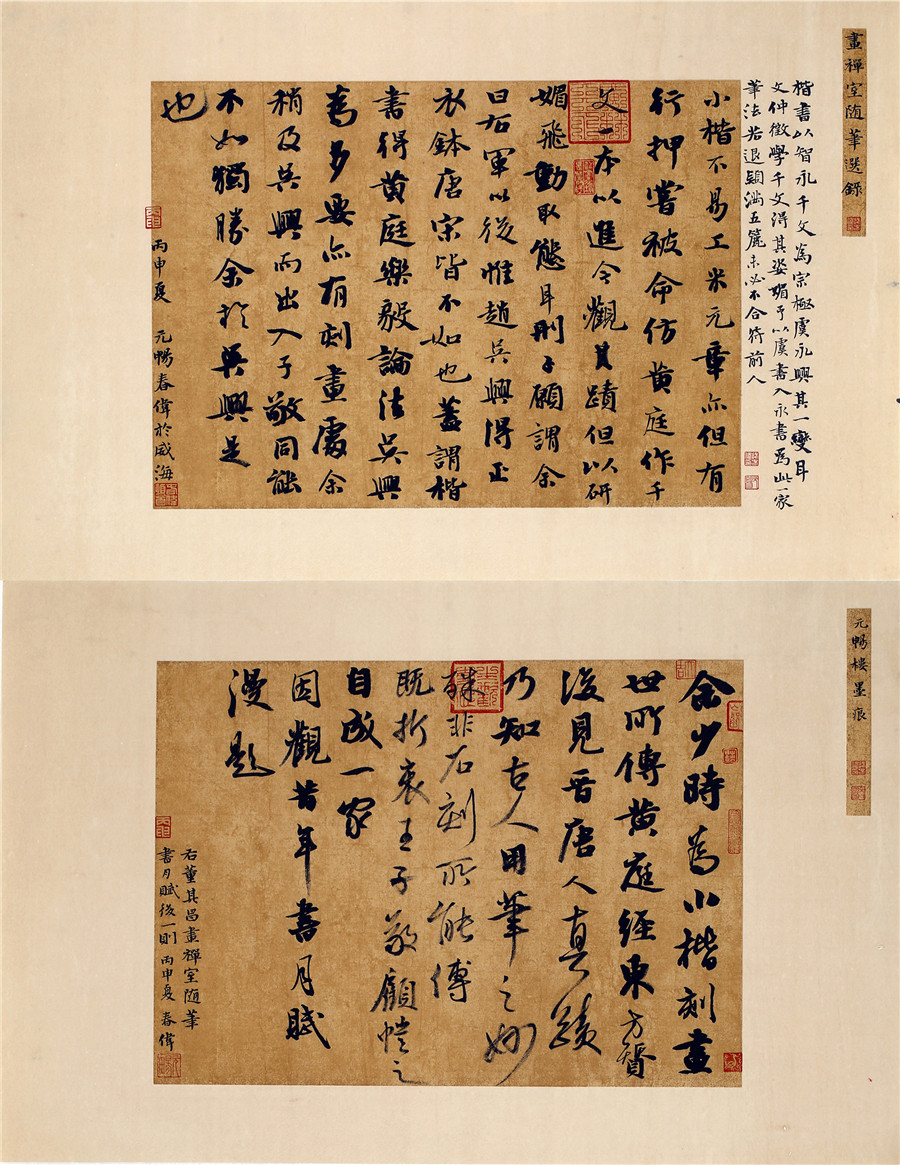 畫禪室隨筆選錄
楷書以智永千文為宗極虞永興其一變耳
文仲徵學千文得其姿媚予以虞書入永書為此一家
筆法若退穎滿五簏未必不合符前人
小楷不易工米元章亦但有
行押嘗被命仿黄庭作千
文一本以進今觀其蹟但以研
媚飛動取態耳刑子願謂余
曰右軍以後惟趙吳興得正
衣鉢唐宋皆不如也蓋謂楷
書得黄庭樂毅論法吳興
為多要亦有刻畫處余
稍及吳興而出入子敬同能
不如獨勝余於吳興是
也
丙申夏 元暢春偉於威海
元暢楼墨痕
余少時為小楷刻畫
世所傳黄庭經東方贊
後見晋唐人真蹟
乃知古人用筆之妙
殊非石刻所能傳
既折衷王子敬顧愷之
自成一家
因觀昔年書月賦
漫題
右董其昌畫禪室随筆
書月賦後一則 丙申夏 春偉